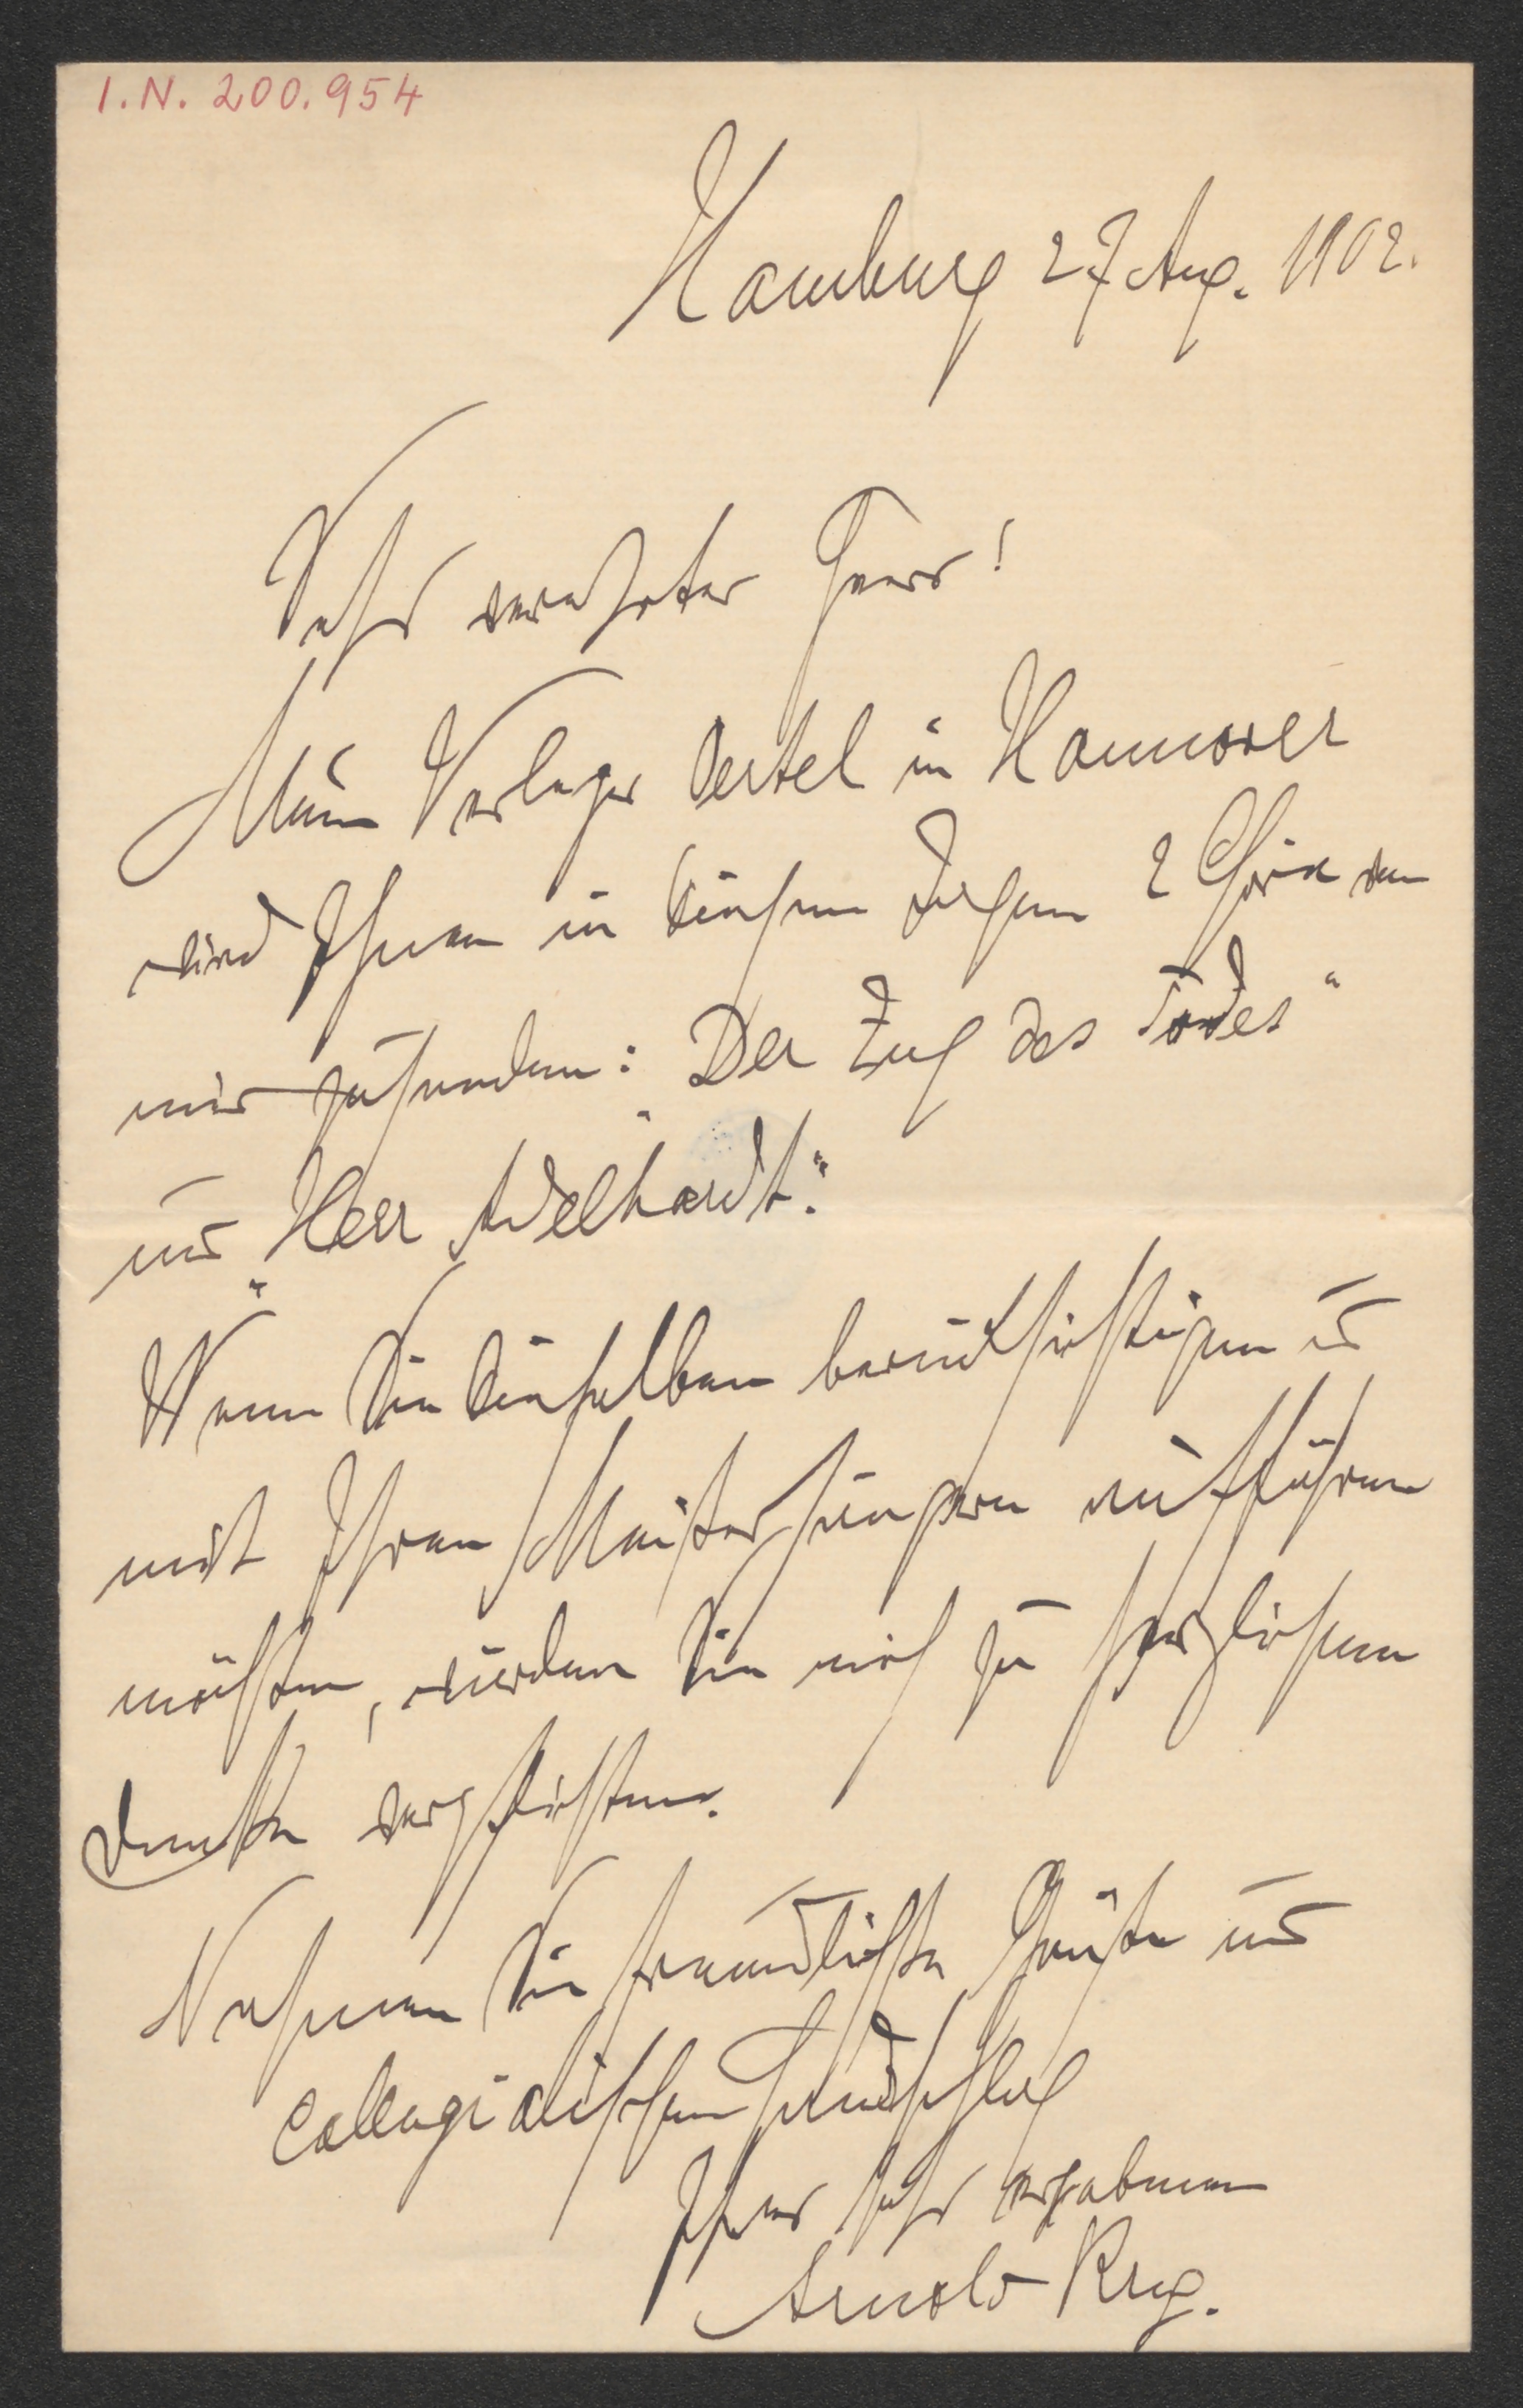 I.N. 200.954
Hamburg 27 Aug. 1902.
Sehr verehrter Herr!
Mein Verleger Oertel in Hannover
wird Ihnen in diesen Tagen 2 Chöre von
mir zusenden: „Der Zug des Todes“
und „Herr Adelhardt“.
Wenn Sie dieselben berücksichtigen u
mit Ihren Meistersingern aufführen
möchten, würden Sie mich zu herzlichem
Danke verpflichten.
Nehmen Sie freundlichste Grüße und
collegialischen Handschlag
Ihres sehr ergebenen
Arnold Krug.